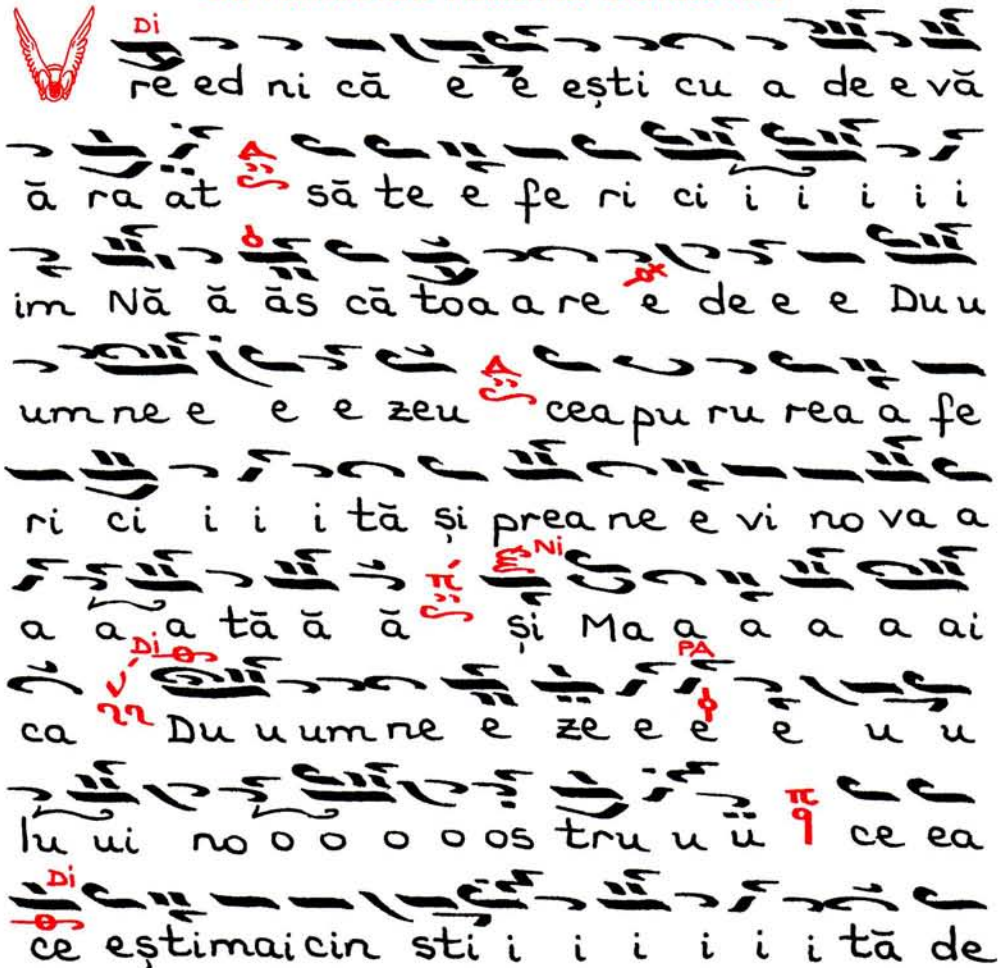 Di
V re ed ni că e e ești cu a de e vă
ă ra at să te e fe ri ci i i i i i
im Nă ă ăs că toa a re e de e e Du u
um ne e e e zeu cea pu ru rea a fe
ri ci i i i tă și prea ne e vi no va a
Ni
a a a tă ă ă și Ma a a a a ai
Di PA
ca Du u um ne e ze e e e u u
lu ui no o o o o os tru u ü ce ea
Di
ce ești mai cin sti i i i i i i tă de